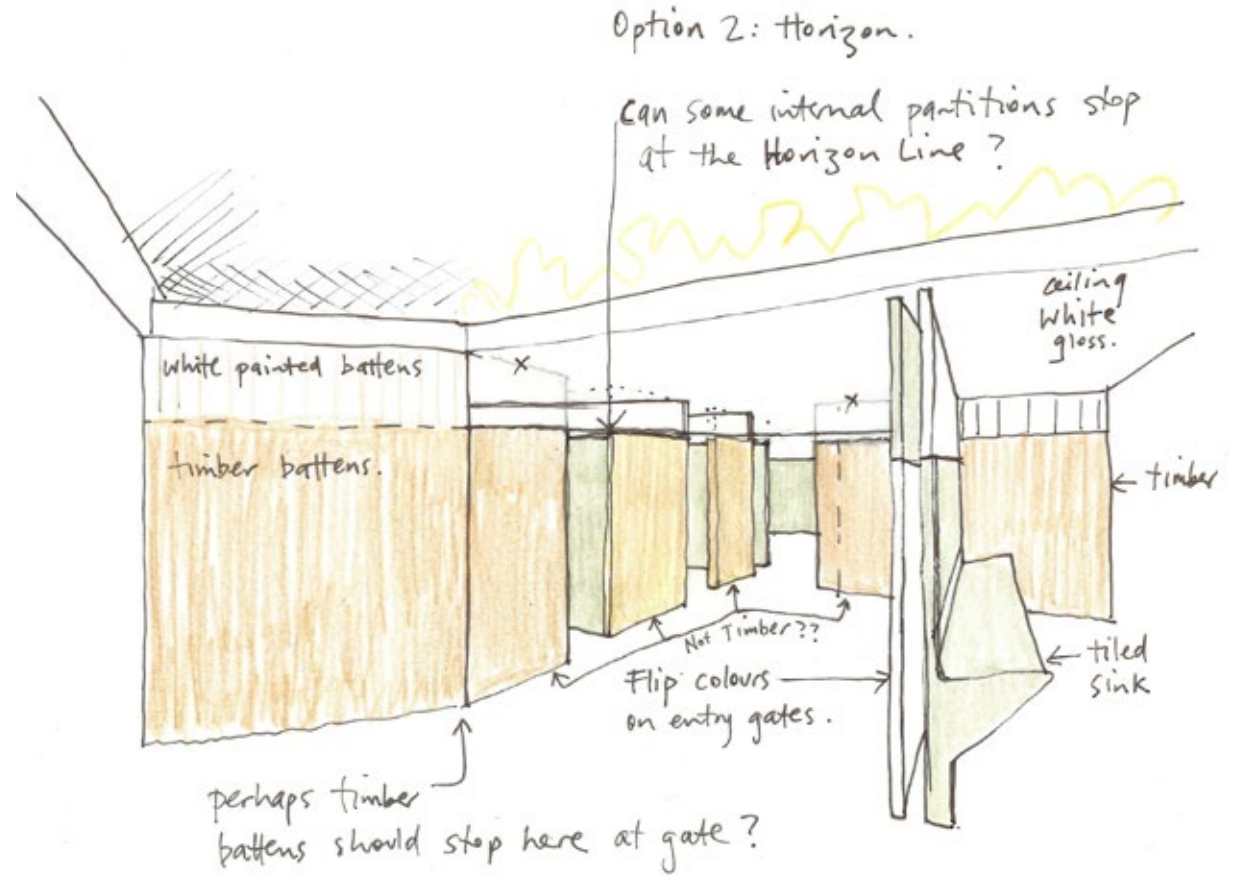 Option 2: Horizon.
Can some internal partitions stop
at the Horizon Line?
ceiling
white
gloss.
white painted battens
x
x
timber battens.
← timber
Not Timber??
Flip colours
on entry gates.
← tiled
sink
perhaps timber
battens should stop here at gate?